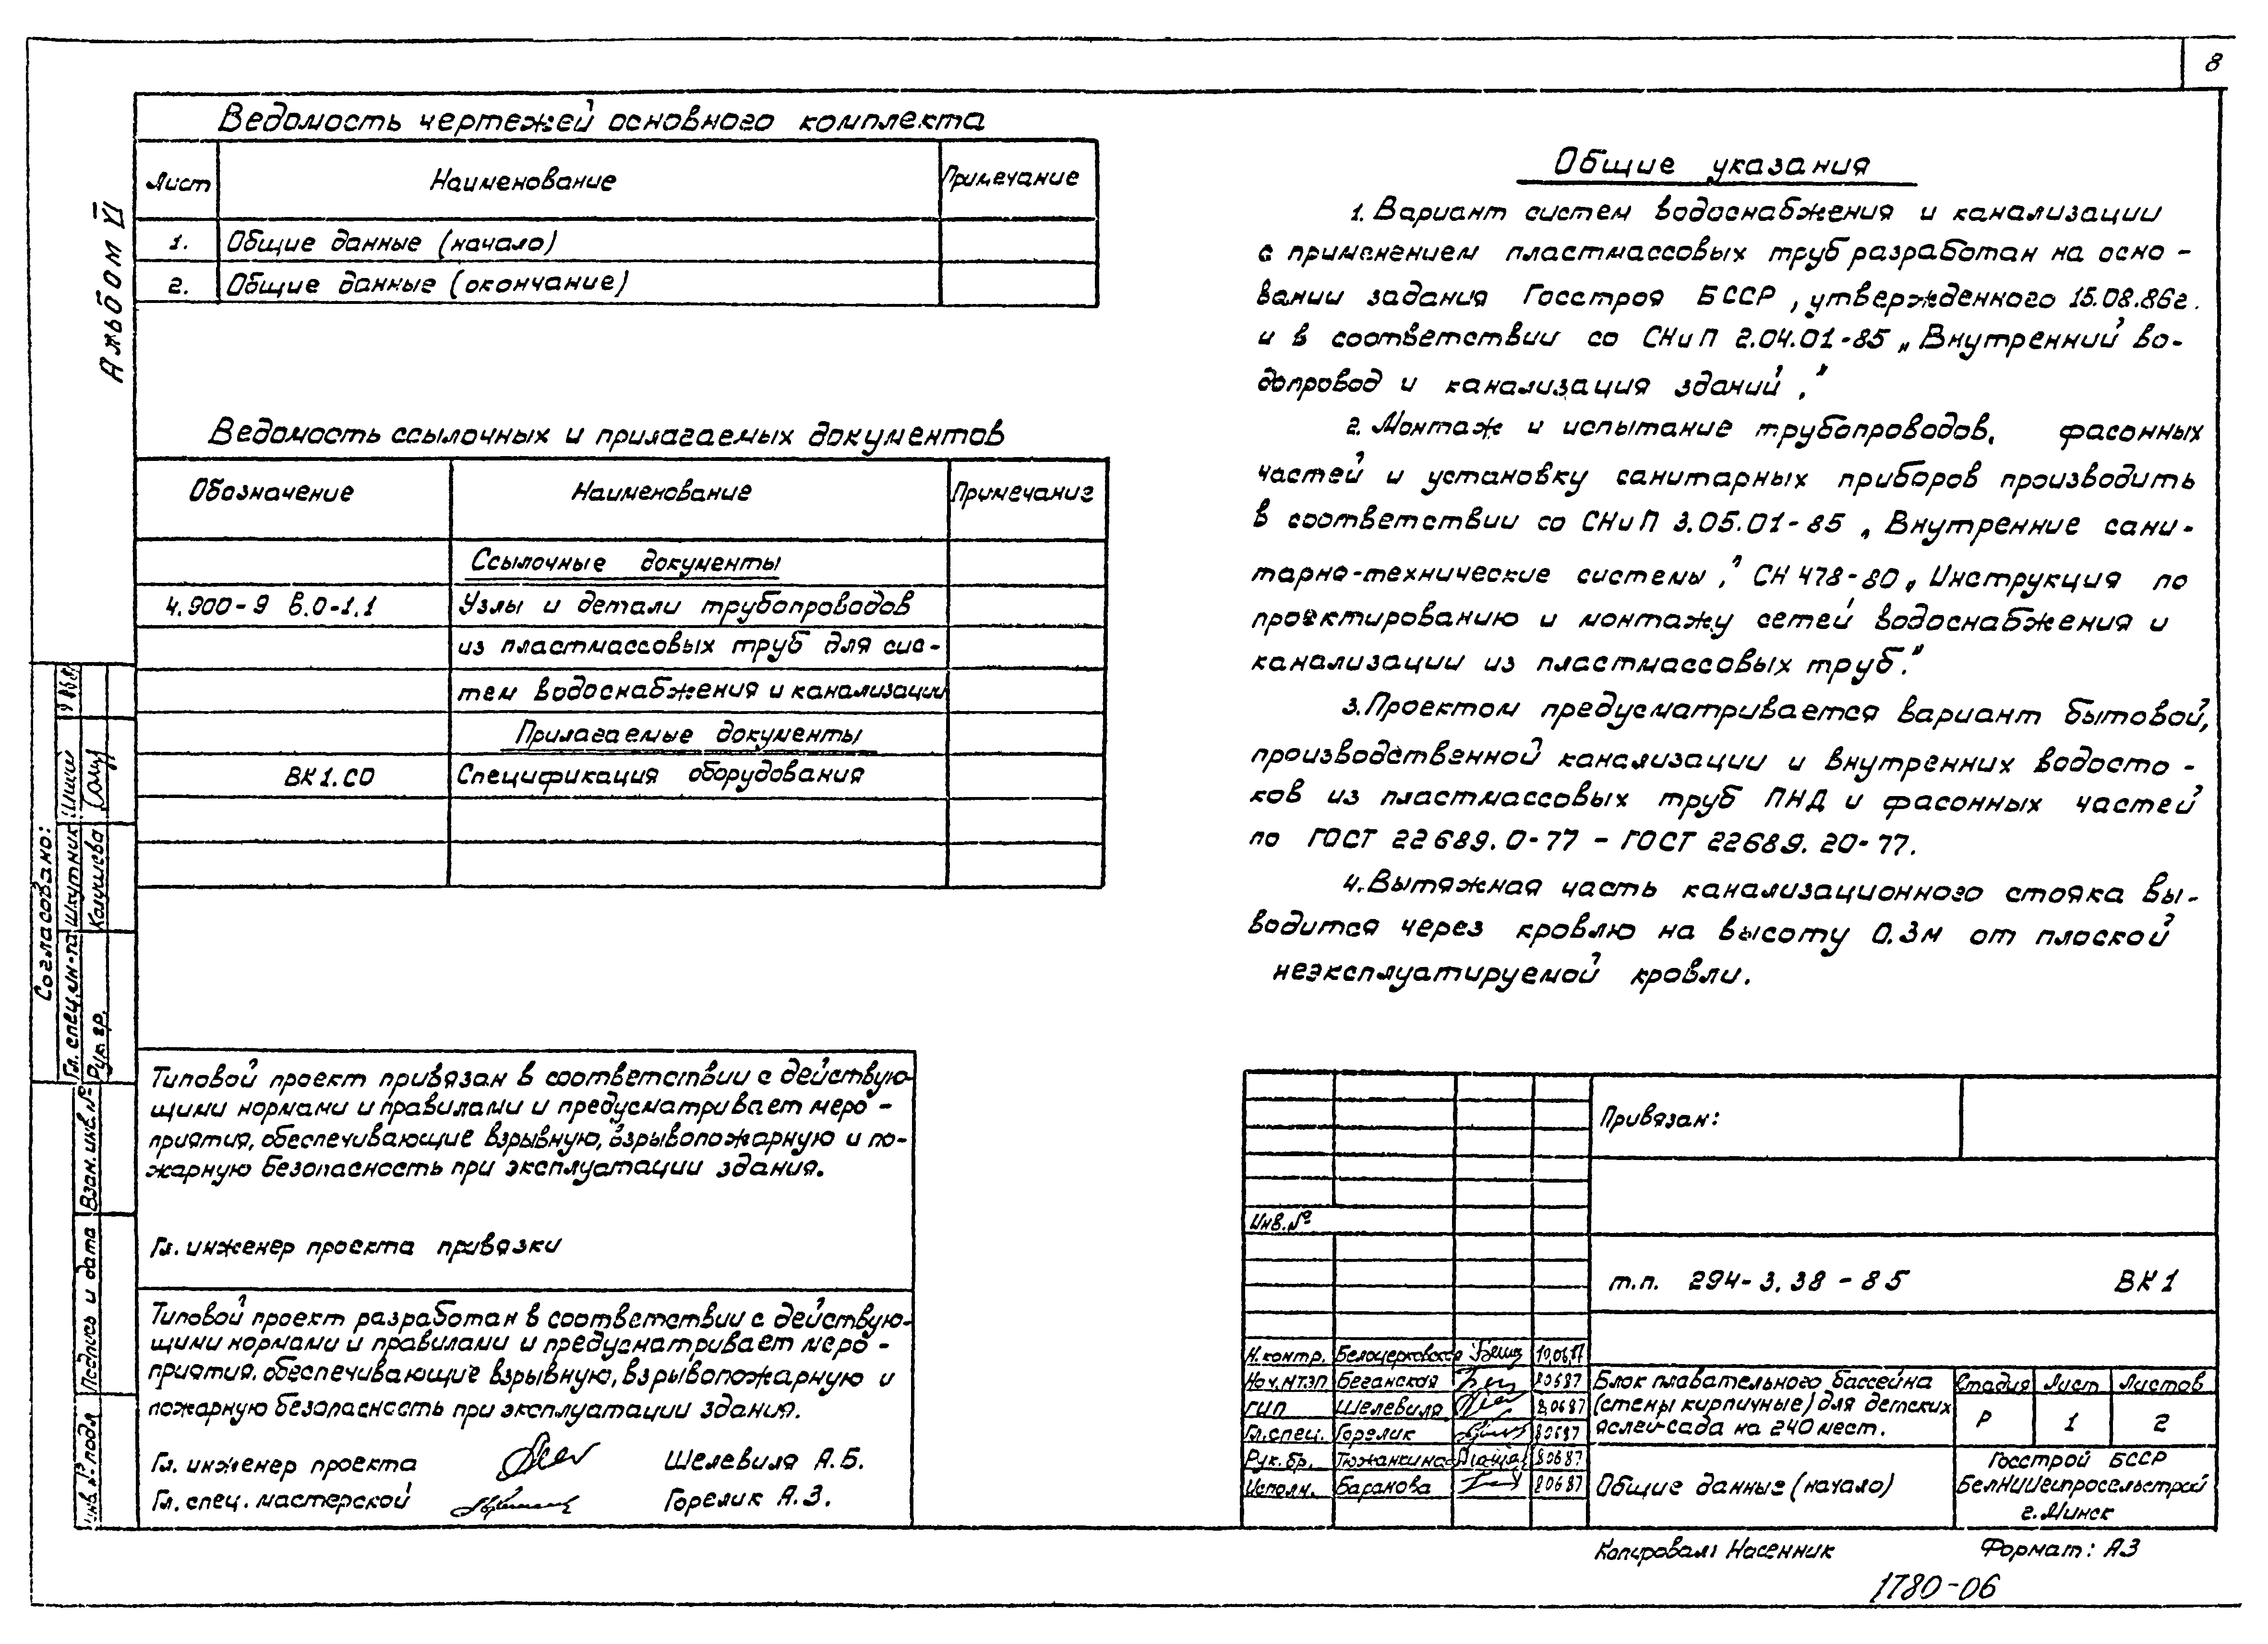 8
Альбом VI
Ведомость чертежей основного комплекта
Лист Наименование Примечание
1. Общие данные (начало)
2. Общие данные (окончание)
Ведомость ссылочных и прилагаемых документов
Обозначение Наименование Примечание
Ссылочные документы
4.900-9 в.0-1.1 Узлы и детали трубопроводов
из пластмассовых труб для сис-
тем водоснабжения и канализации
Прилагаемые документы
ВК1.СО Спецификация оборудования
Общие указания
1. Вариант систем водоснабжения и канализации
с применением пластмассовых труб разработан на осно-
вании задания Госстроя БССР, утвержденного 15.08.86г.
и в соответствии со СНиП 2.04.01-85 „Внутренний во-
допровод и канализация зданий."
2. Монтаж и испытание трубопроводов, фасонных
частей и установку санитарных приборов производить
в соответствии со СНиП 3.05.01-85 „Внутренние сани-
тарно-технические системы," СН 478-80 „Инструкция по
проектированию и монтажу сетей водоснабжения и
канализации из пластмассовых труб."
3. Проектом предусматривается вариант бытовой,
производственной канализации и внутренних водосто-
ков из пластмассовых труб ПНД и фасонных частей
по ГОСТ 22689.0-77 - ГОСТ 22689.20-77.
4. Вытяжная часть канализационного стояка вы-
водится через кровлю на высоту 0.3м от плоской
неэксплуатируемой кровли.
Согласовано:
Гл. спец. ин-та Шкутник
Рук. гр. Калушева
Взам. инв. №
Подпись и дата
Инв. № подл
Типовой проект привязан в соответствии с действую-
щими нормами и правилами и предусматривает меро-
приятия, обеспечивающие взрывную, взрывопожарную и по-
жарную безопасность при эксплуатации здания.
Гл. инженер проекта привязки
Типовой проект разработан в соответствии с действую-
щими нормами и правилами и предусматривает меро-
приятия, обеспечивающие взрывную, взрывопожарную и
пожарную безопасность при эксплуатации здания.
Гл. инженер проекта Шелевиля А.Б.
Гл. спец. мастерской Горелик А.З.
Привязан:
Инв. №
т.п. 294-3.38-85 ВК1
Н.контр. Белоцерковская 10.06.87
Нач. МТЭП Беганская 80687
ГИП Шелевиля 8.0687
Гл. спец. Горелик 80687
Рук. бр. Тюжанкина 80687
Исполн. Баранова 80687
Блок плавательного бассейна
(стены кирпичные) для детских
яслей-сада на 240 мест.
Стадия Лист Листов
Р 1 2
Общие данные (начало)
Госстрой БССР
БелНИИгипросельстрой
г. Минск
Копировал: Насенник Формат: А3
1780-06